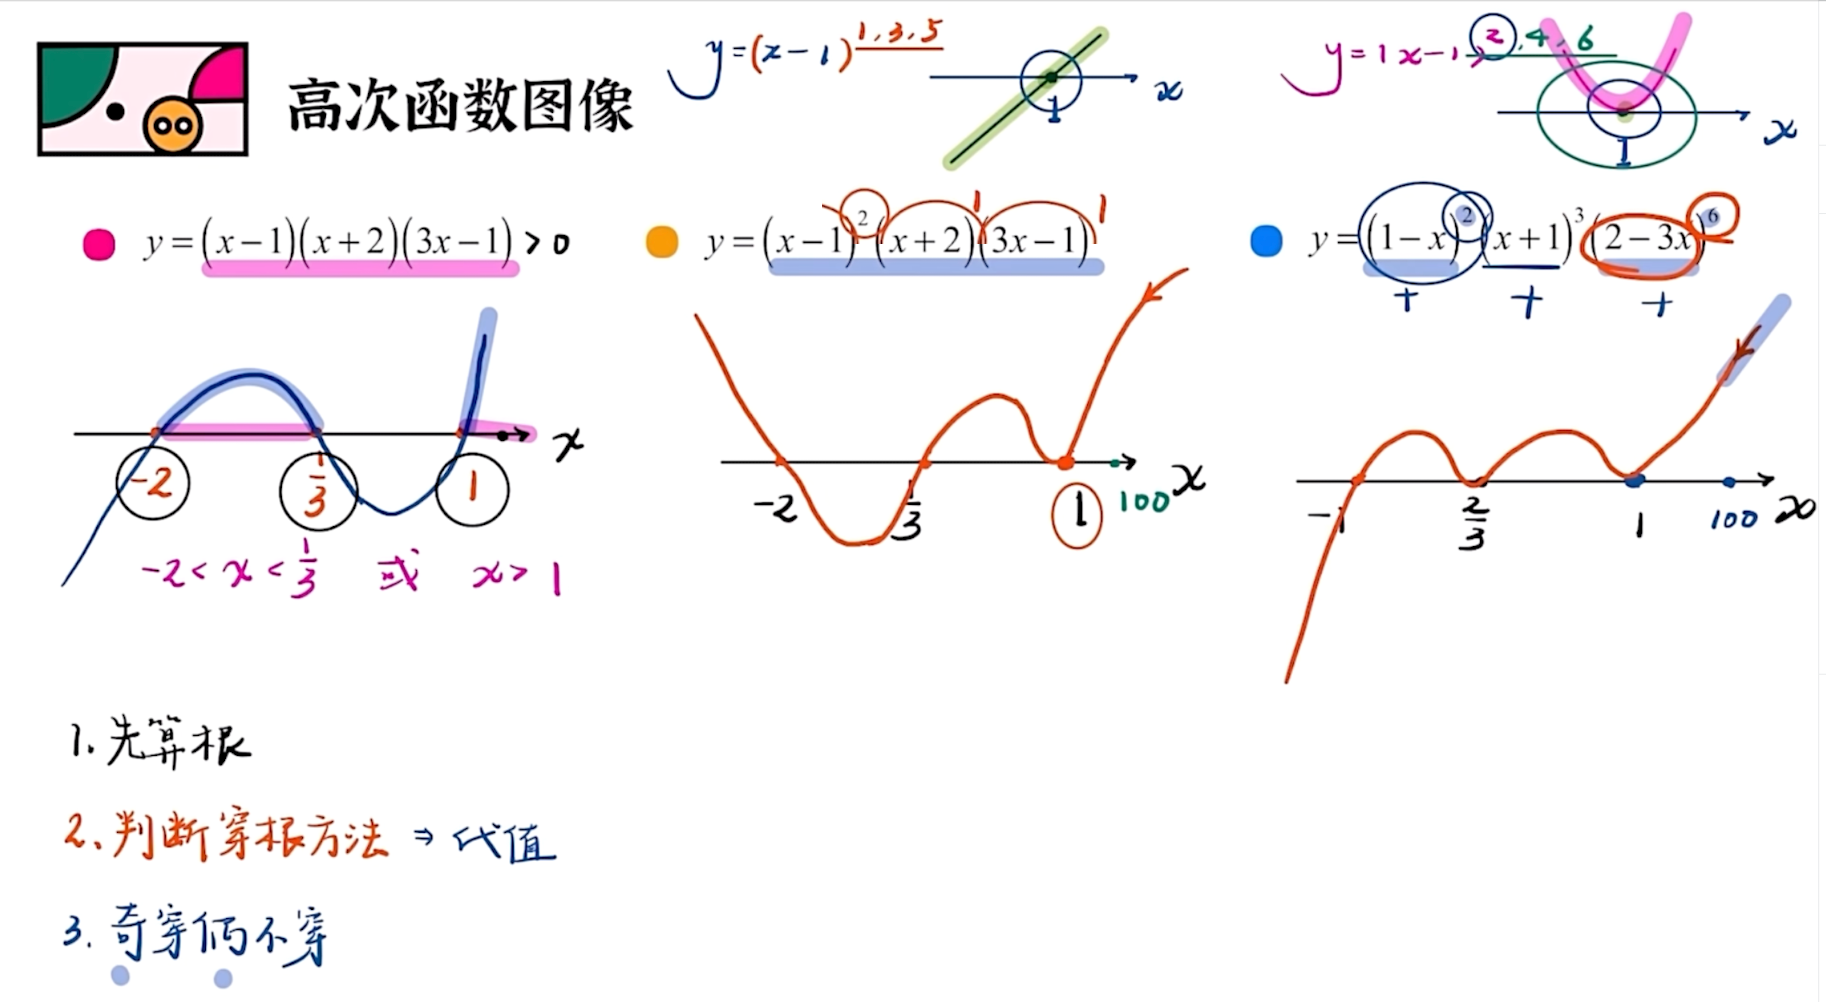 高次函数图像
y=(x-1)^{1,3,5}
x
1
y=(x-1)^{2,4,6}
x
1
y=(x-1)(x+2)(3x-1)>0
x
-2
1/3
1
-2<x<1/3 或 x>1
y=(x-1)^2(x+2)^1(3x-1)^1
x
-2
1/3
1
100
y=(1-x)^2(x+1)^3(2-3x)^6
+ + +
x
-1
2/3
1
100
1.先算根
2、判断穿根方法⇒代值
3.奇穿偶不穿